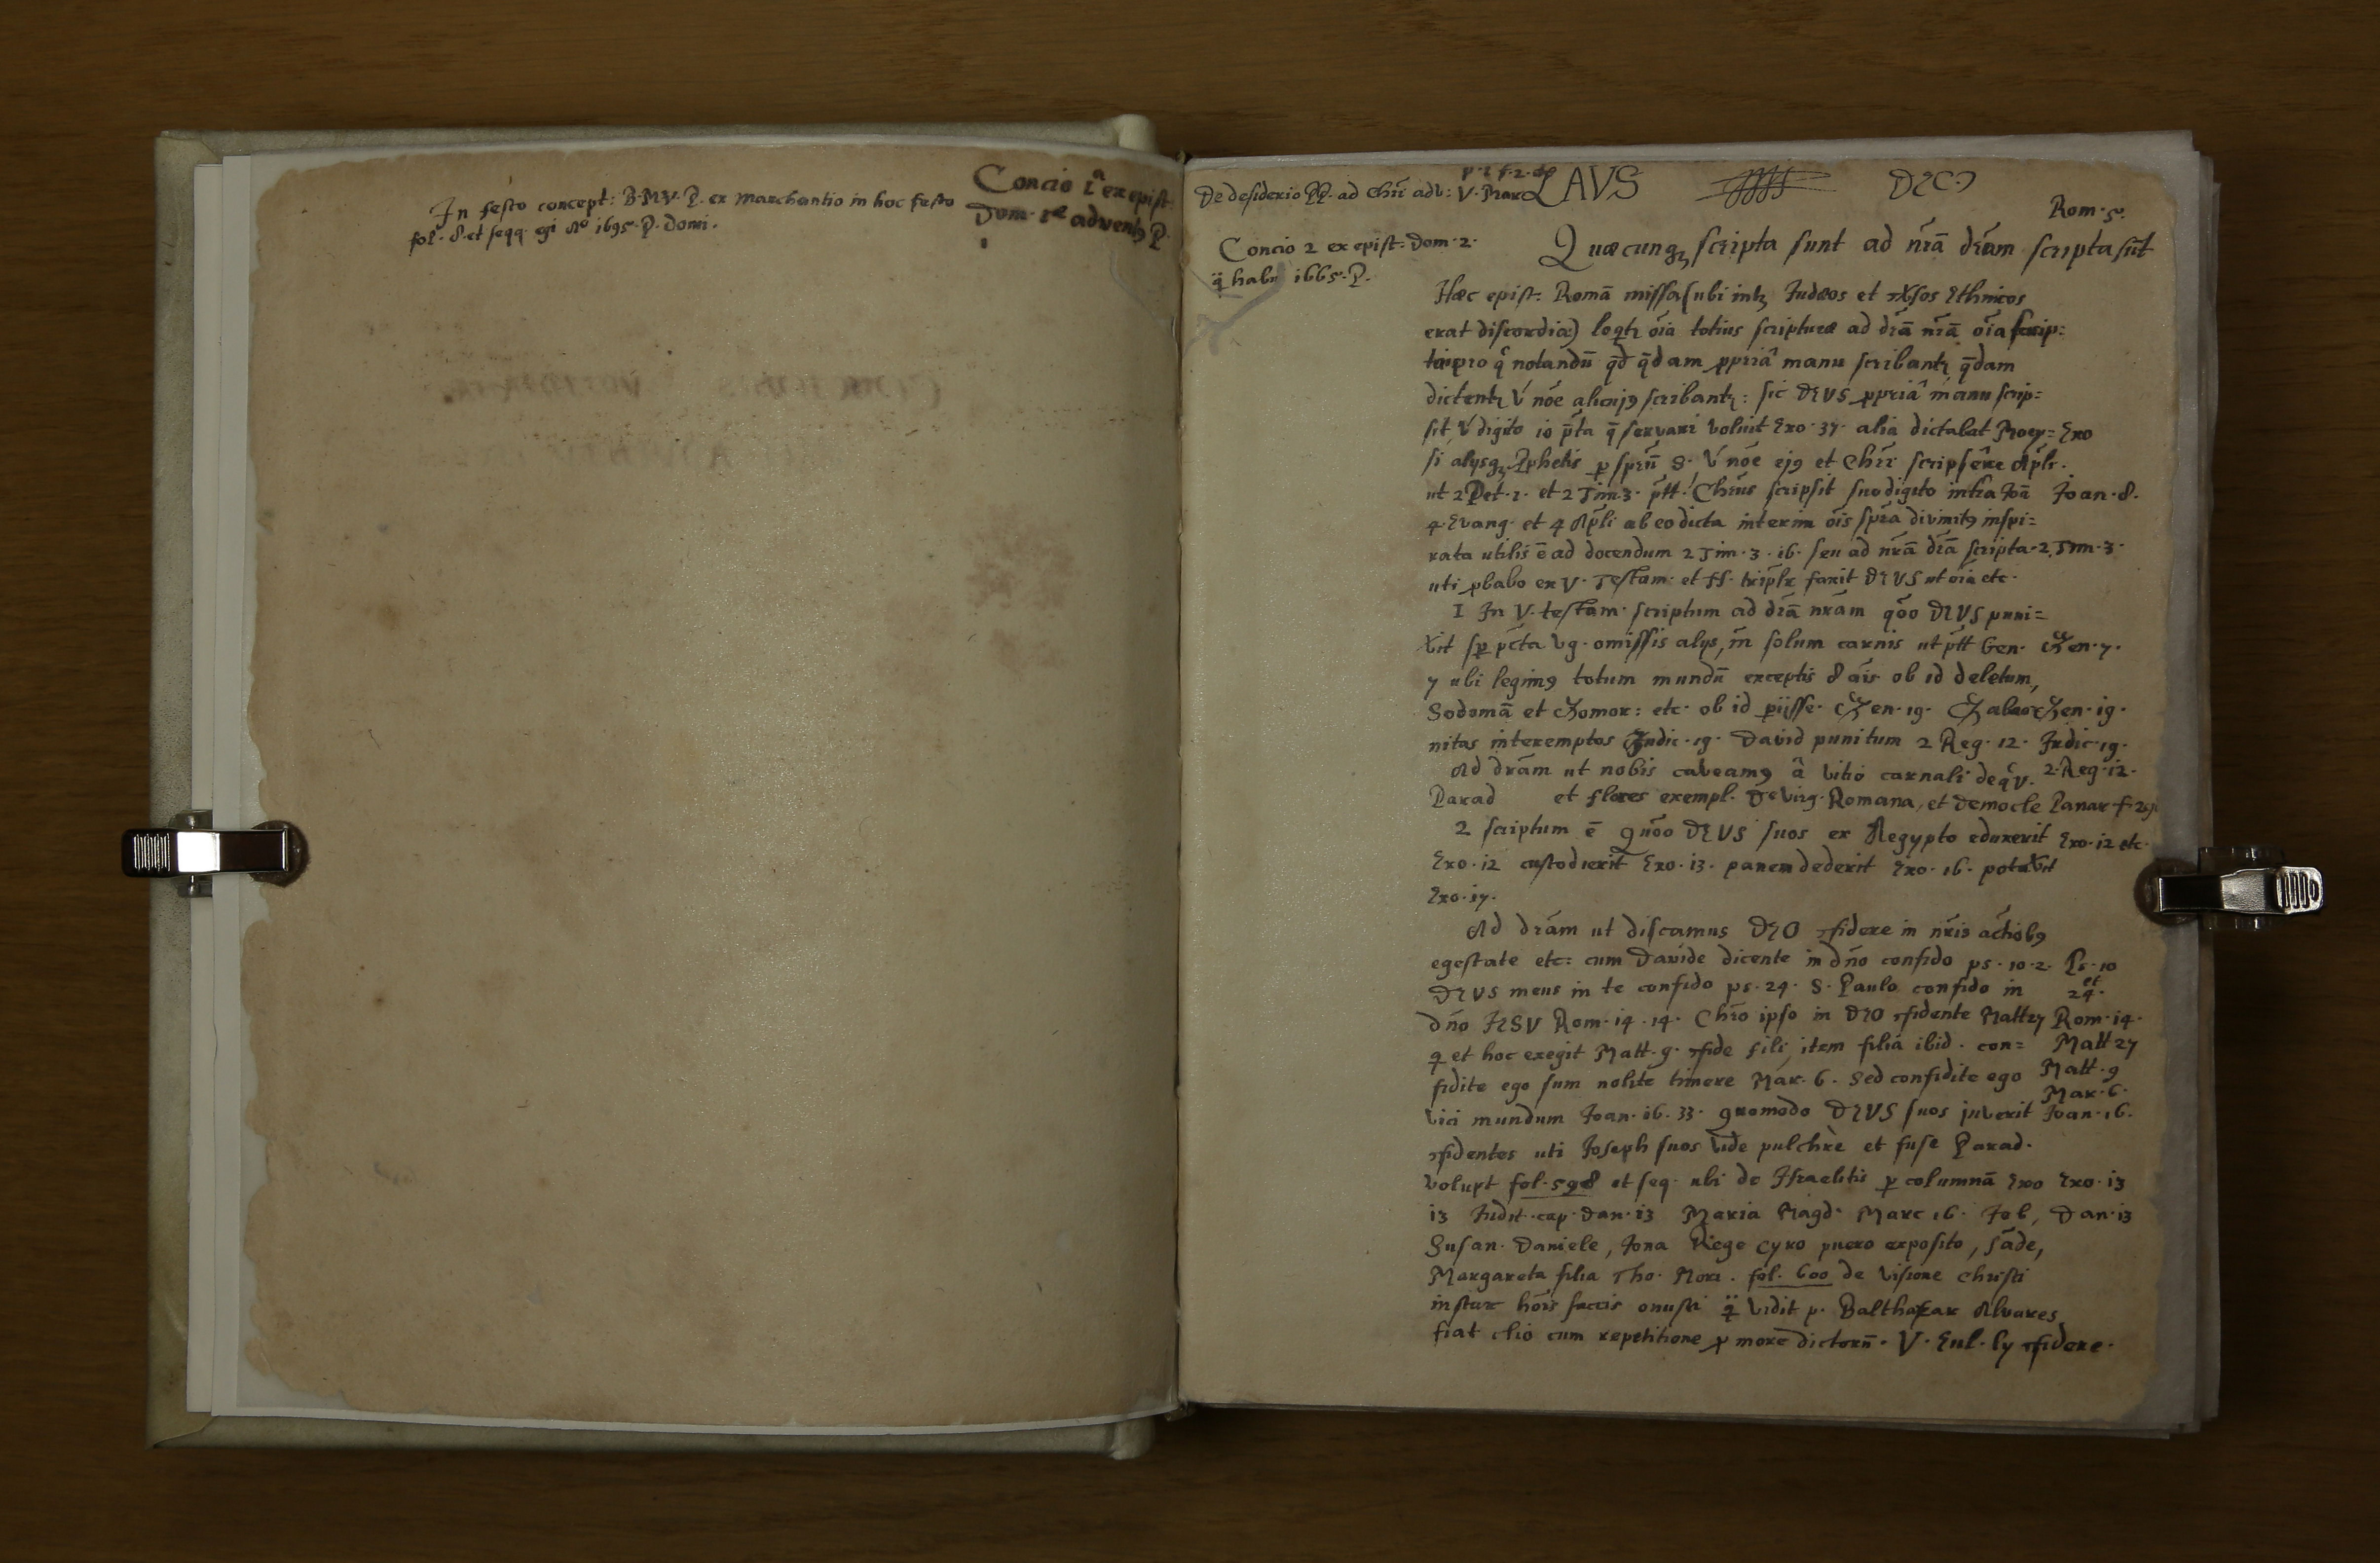 In festo concept: B. M. V. P. ex Marchantio in hoc festo
fol. 8. et seqq. egi Aō 1695. P. Domi.
Concio 1ª ex epist:
Dom. 1æ adventꝰ P.
De desiderio PP. ad Chri adv: V. Marc
LAVS DEO
Rom. 5.
Concio 2 ex epist: Dom. 2.
q̈ habui 1665. P.
Quæcunqꝫ scripta sunt ad nrā drām scripta sūt
Hæc epist: Romā missa (ubi intꝫ Judæos et Ethnicos
erat discordia) loqtr oīa totius scripturæ ad drā nrā oīa scrip=
notandū qd̄ q̄dam ppriâ manu scribantr q̄dam
dictentr V nōe alicujꝰ scribantr: sic DEUS ppriâ manu scrip=
sit V digito 10 p̄ta q̄ servari voluit Exo. 37. alia dictabat Moy= Exo
si alysqꝫ Pphetis p spm̄ S. V nōe ejꝰ et Chri scripsêre Apli.
ut 2 Pet. 1. et 2 Tim. 3. ptt. Chrus scripsit suo digito Joan. 8.
4. Evang. et 4 Apli ab eo dicta interim oīs spra divinitꝰ inspi=
rata utilis ē ad docendum 2 Tim. 3. 16. seu ad nrā drā scripta. 2. Tim. 3.
uti pbabo ex V. Testam. et SS. triplr faxit DEUS ut oīa etc.
I In V. testam. scriptum ad drā nrām qōo DEUS puni=
vit sp pcta Vg. omissis alys, m̄ solum carnis ut ptt Gen. Gen. 7.
7 ubi legimꝰ totum mundū exceptis 8 aīs ob id deletum,
Sodomā et Gomor: etc. ob id piisse. Gen. 19. Gabao Gen. 19.
nitas interemptos Judic. 19. David punitum 2 Reg. 12. Judic. 19.
Ad drām ut nobis caveamꝰ â vitio carnali de qͦ V. 2. Reg. 12.
Parad et flores exempl. De virg. Romana, et Democle Panar f. 291
2 scriptum ē quōo DEUS suos ex Aegypto eduxerit Exo. 12 etc.
Exo. 12 custodierit Exo. 13. panem dederit Exo. 16. potavit
Exo. 17.
Ad drām ut discamus DEO ꝯfidere in nris actiōbꝰ
egestate etc: cum Davide dicente in dno confido ps. 10. 2. Ps. 10
DEUS meus in te confido ps. 24. S. Paulo confido in et 24.
dno JESU Rom. 14. 14. Chro ipso in DEO ꝯfidente Matt 27 Rom. 14.
q et hoc exegit Matt. 9. ꝯfide fili, item filia ibid. con= Matt 27
fidite ego sum nolite timere Mar. 6. Sed confidite ego Matt. 9
Mar. 6.
vici mundum Joan. 16. 33. quomodo DEUS suos juverit Joan. 16.
ꝯfidentes uti Joseph suos vide pulchrè et fuse Parad.
volupt fol. 598 et seq. ubi de Israelitis p columnā Exo Exo. 13
13 Judit. cap. Dan. 13 Maria Magd. Marc 16. Job, Dan. 13
Susan. Daniele, Jona Rege Cyro puero exposito, Sade,
Margareta filia Tho. Mori. fol. 600 de visione Christi
instar hōis saccis onusti q̈ vidit p. Balthasar Alvares
fiat clio cum repetitione p more dictorū. V. Eul. ly ꝯfidere.